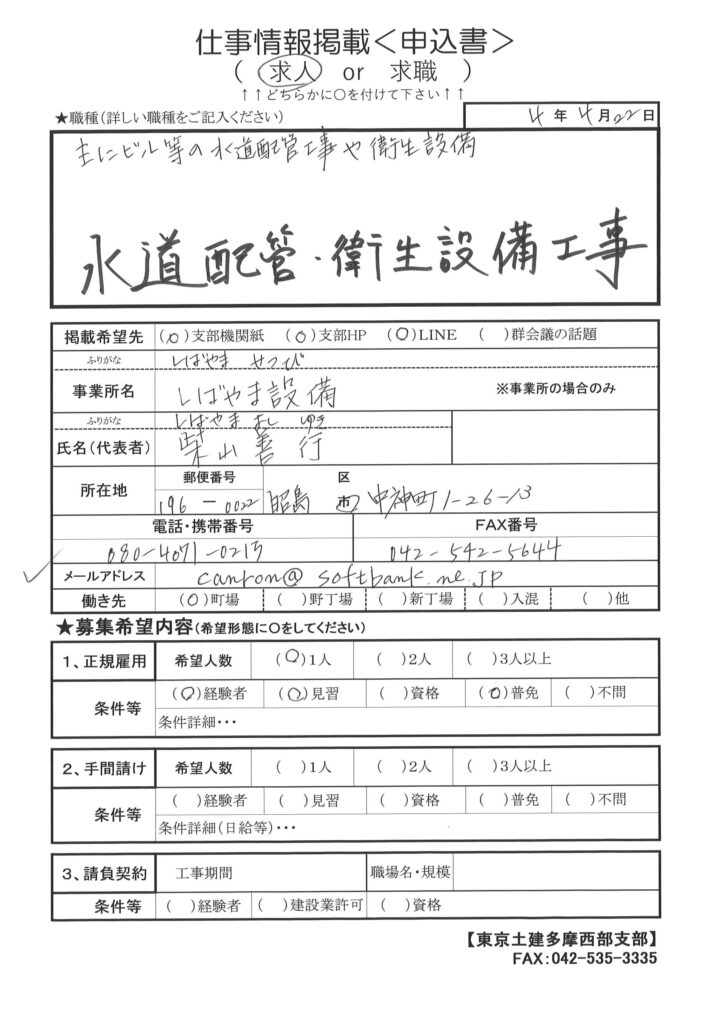 仕事情報掲載＜申込書＞
（ 求人 or 求職 ）
↑↑どちらかに〇を付けて下さい↑↑
★職種（詳しい職種をご記入ください）
4年4月22日
主にビル等の水道配管工事や衛生設備
水道配管・衛生設備工事
掲載希望先 (○)支部機関紙 (○)支部HP (○)LINE ( )群会議の話題
ふりがな しばやま せつび
事業所名 しばやま設備 ※事業所の場合のみ
ふりがな しばやま よし ゆき
氏名（代表者） 柴山 善行
所在地 郵便番号 区
196-0022 昭島 市 中神町1-26-13
電話・携帯番号 FAX番号
080-4071-0215 042-542-5644
メールアドレス canron@softbank.ne.jp
働き先 (○)町場 ( )野丁場 ( )新丁場 ( )入混 ( )他
★募集希望内容（希望形態に〇をしてください）
1、正規雇用 希望人数 (○)1人 ( )2人 ( )3人以上
条件等 (○)経験者 (○)見習 ( )資格 (○)普免 ( )不問
条件詳細・・・
2、手間請け 希望人数 ( )1人 ( )2人 ( )3人以上
条件等 ( )経験者 ( )見習 ( )資格 ( )普免 ( )不問
条件詳細（日給等）・・・
3、請負契約 工事期間 職場名・規模
条件等 ( )経験者 ( )建設業許可 ( )資格
【東京土建多摩西部支部】
FAX:042-535-3335